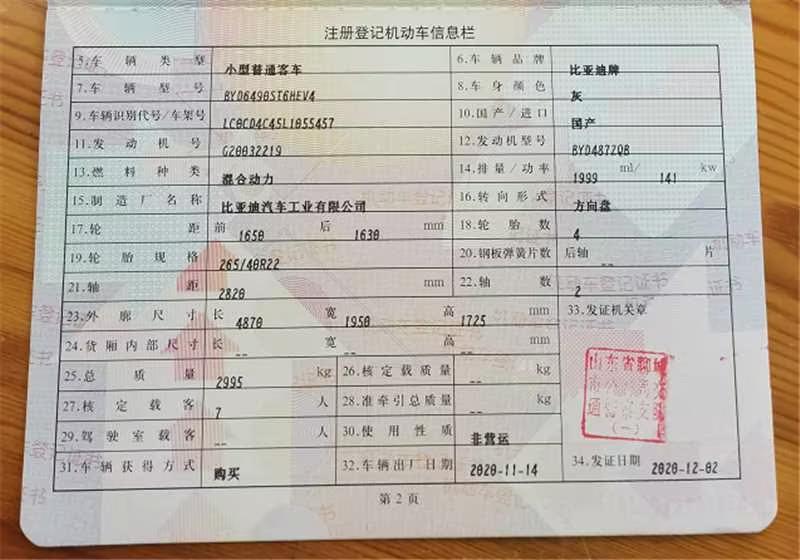 注册登记机动车信息栏
5.车辆类型 小型普通客车 6.车辆品牌 比亚迪牌
7.车辆型号 BYD6490ST6HEV4 8.车身颜色 灰
9.车辆识别代号/车架号 LC0CD4C45L1055457 10.国产/进口 国产
11.发动机号 G20032219 12.发动机型号 BYD487ZQB
13.燃料种类 混合动力 14.排量/功率 1999 ml/ 141 kw
15.制造厂名称 比亚迪汽车工业有限公司 16.转向形式 方向盘
17.轮距 前 1650 后 1630 mm 18.轮胎数 4
19.轮胎规格 265/40R22 20.钢板弹簧片数 后轴 -- 片
21.轴距 2820 mm 22.轴数 2
23.外廓尺寸 长 4870 宽 1950 高 1725 mm 33.发证机关章
24.货厢内部尺寸 长 -- 宽 -- 高 -- mm
25.总质量 2995 kg 26.核定载质量 -- kg
27.核定载客 7 人 28.准牵引总质量 -- kg
29.驾驶室载客 -- 人 30.使用性质 非营运
31.车辆获得方式 购买 32.车辆出厂日期 2020-11-14 34.发证日期 2020-12-02
第2页